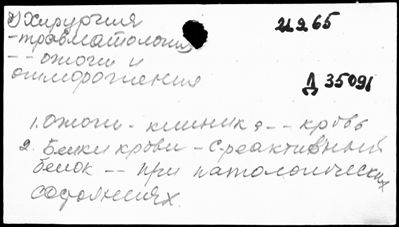 Хирургия 21265
-травматология
-- ожоги и
отморожения
Д 35091
1. Ожоги - клиника -- кровь
2. Белки крови - С-реактивный
белок -- при патологических
состояниях.